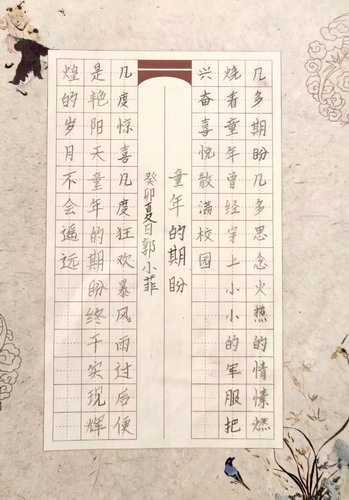 几多期盼几多思念火熱的情愫燃
烧着童年曾经穿上小小的军服把
兴奋喜悦散满校园
童年的期盼
癸卯夏日郭小菲
几度惊喜几度狂欢暴风雨过后便
是艳阳天童年的期盼终于实现辉
煌的岁月不会遥远